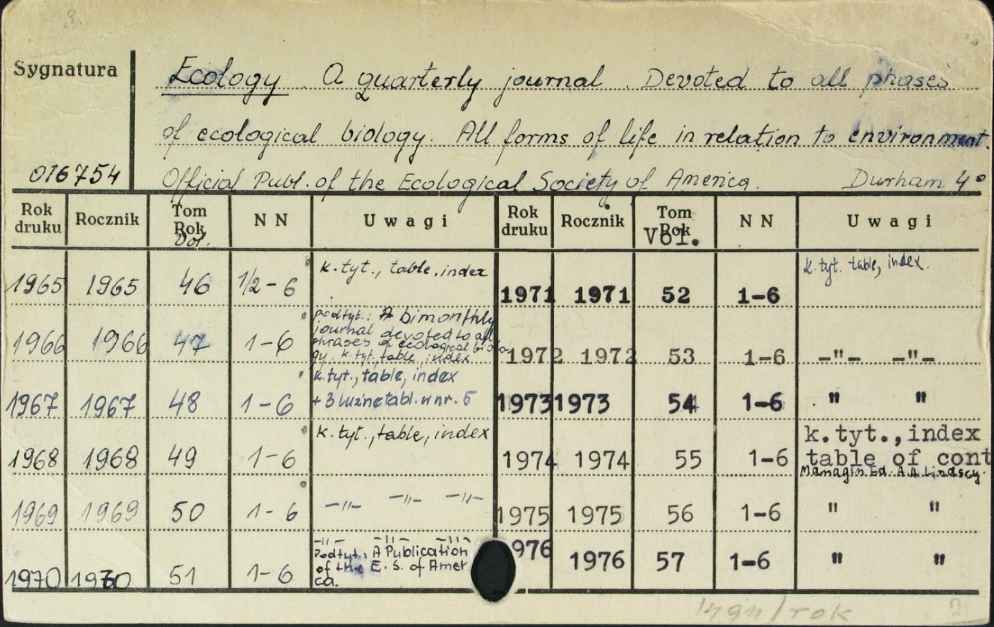 Sygnatura
Ecology. A quarterly journal. Devoted to all phases
of ecological biology. All forms of life in relation to environment.
016754 Official Publ. of the Ecological Society of America. Durham 4°
Rok druku Rocznik Tom Rok Vol. NN Uwagi Rok druku Rocznik Tom Rok Vol. NN Uwagi
1965 1965 46 1/2-6 k. tyt., table, index
1966 1966 47 1-6 podtyt.: A bimonthly
journal devoted to all
phrases of ecological biolo
gy. k. tyt, table, index
1967 1967 48 1-6 k. tyt., table, index
+ 3 luźne tabl. w nr. 5
1968 1968 49 1-6 k. tyt., table, index
1969 1969 50 1-6 -"- -"- -"-
1970 1970 51 1-6 -"- -"- -"-
Podtyt.: A Publication
of the E. S. of Ameri
ca.
1971 1971 52 1-6 k. tyt. table, index.
1972 1972 53 1-6 -"- -"-
1973 1973 54 1-6 " "
1974 1974 55 1-6 k.tyt.,index
table of cont
Managin. Ed. A.A. Lindsey.
1975 1975 56 1-6 " "
1976 1976 57 1-6 " "